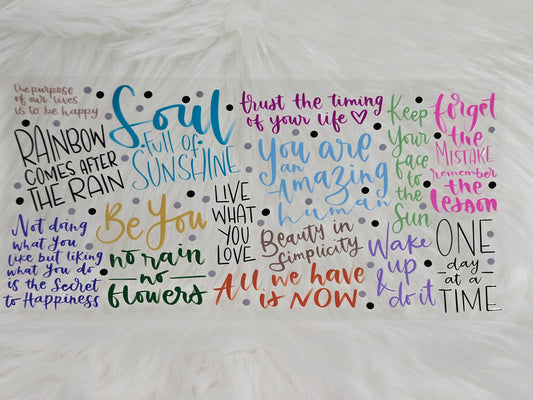 The purpose
of our lives
is to be happy
RAINBOW
COMES AFTER
THE RAIN
Soul
full of
SUNSHINE
trust the timing
of your life
You are
an
Amazing
human
Keep
Your
face
to
the
Sun
forget
the
MISTAKE
remember
the
lesson
Not doing
what you
like but liking
what you do
is the Secret
to Happiness
Be You
no rain
no
flowers
LIVE
WHAT
YOU
LOVE
Beauty in
Simplicity
All we have
is NOW
Wake
up
& do it
ONE
day
at a
TIME